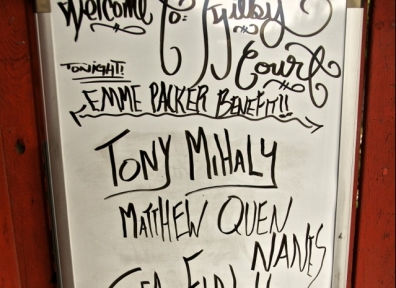 Welcome To: Kilby
Court
TONIGHT!
EMME PACKER BENEFIT!!
TONY MIHALY
MATTHEW QUEN
NANES